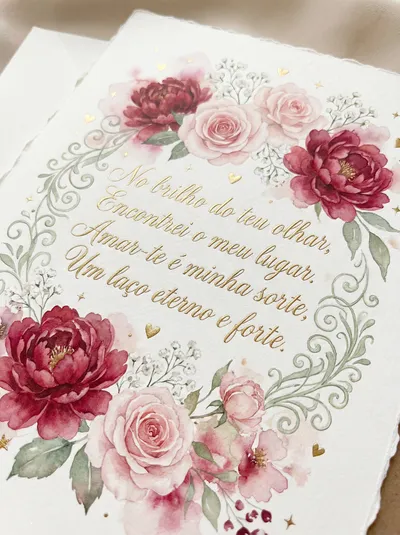 No brilho do teu olhar,
Encontrei o meu lugar.
Amar-te é minha sorte,
Um laço eterno e forte.